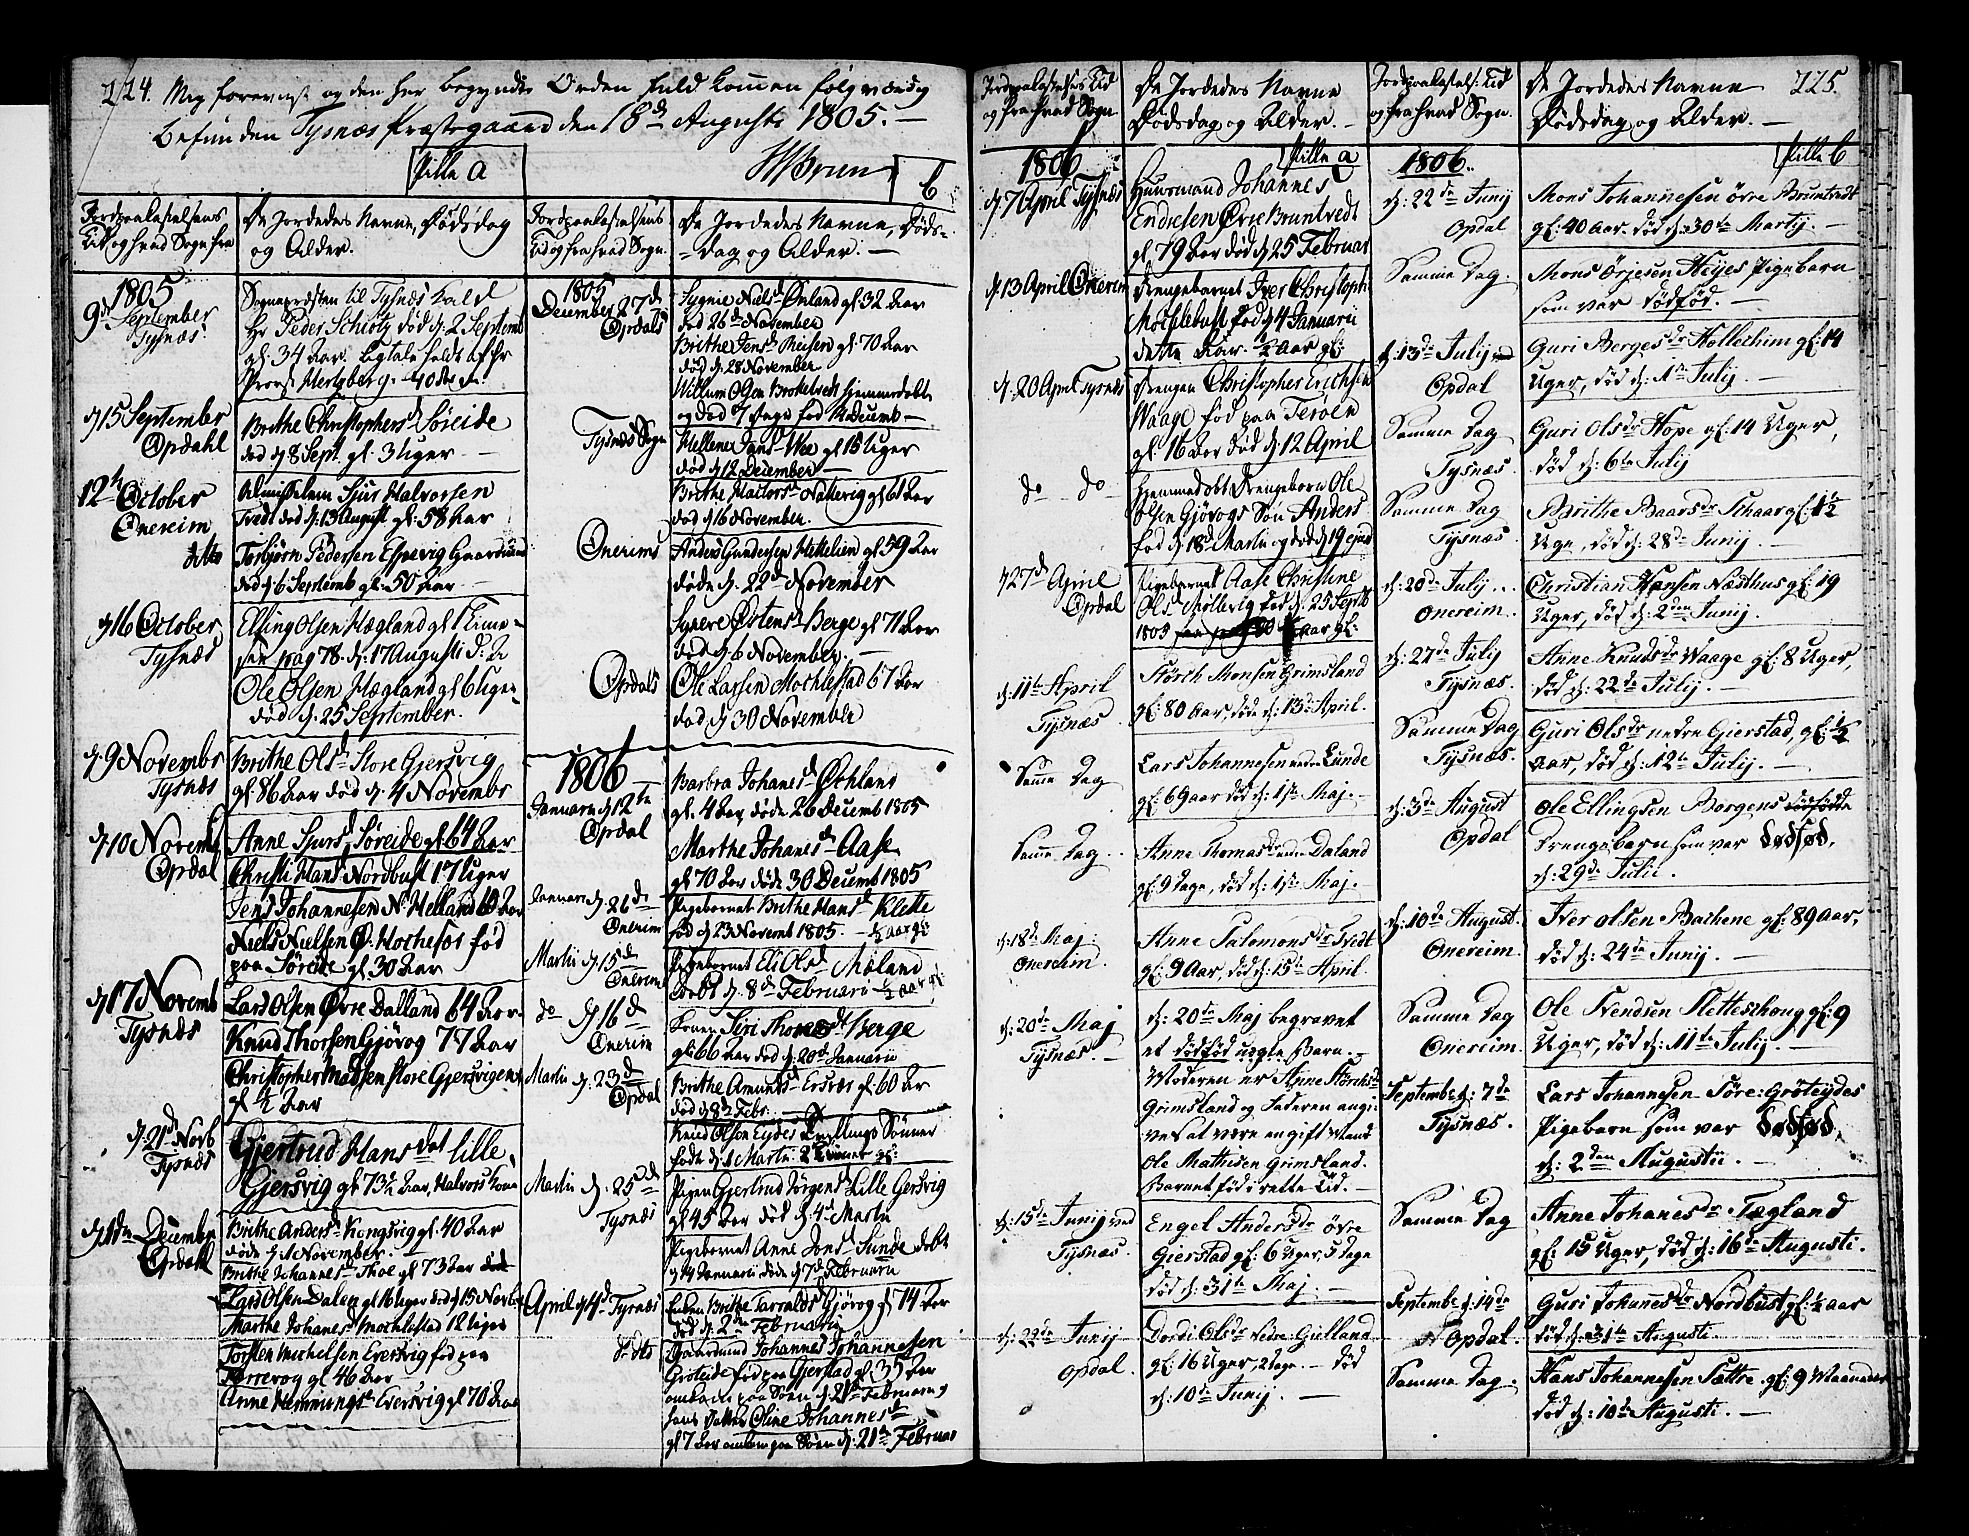 224. Meg forevist og den her begyndte Orden fuldkommen følgværdig
befunden Tysnæs Præstegaard den 18de Augusti 1805. —
Pille a
HBrun
b
Jordpaakastelsens
Tid og hvad Sogn fra
De Jordedes Navne, Dødsdag
og Alder.
1805
9de September
Tysnæs
Sognepræsten til Tysnæs Kald
Hr Peder Schiøtz død d. 2 Septemb
gl. 34 Aar. Ligtale holdt af Hr
Provst Hertzberg.
d 15 September
Opdahl
Brithe Christophersd Søreide
død d 8 Sept. gl. 3 Uger —
12te October
Onereim
Almisselem Sjur Halvorsen
Tvedt død d. 13 August gl. 58 Aar
ditto
Torbjørn Pedersen Espevig Gaardmand
død d 6 Septemb gl. 50 Aar. —
d 16 October
Tysnæs
Elling Olsen Hægland gl 1 Time
see pag 78. d. 17 Augusti
Ole Olsen Hægland gl 6 Uger
død d. 25 September.
d 9 Novembr
Tysnæs
Brithe Olsd Store Gjersvig
gl. 86 Aar død d. 4 Novembr
d 10 Novemb
Opdal
Anne Sjursd Søreide gl 64 Aar
Christi Hansd Nordbust 17 Uger
Jens Johannesen N. Helland 10 Aar
Niels Nielsen Ø. Hochesør fød
paa Søreide gl. 30 Aar
d 17 Novemb
Tysnæs
Lars Olsen Øvre Dalland 64 Aar.
Knud Thorsen Gjøvog 77 Aar
Christopher Madsen Store Gjersvigen
gl ½ Aar
d. 21de Novb
Tysnæs
Gjertrud Hansdat lille
Gjersvig gl 73½ Aar, Halvors Kone
d. 1ste Decembr
Opdahl
Brithe Andersd Kongsvig gl. 40 Aar
døde d. 1 November.
Brithe Johannesd Thoe gl 73 Aar
Lars Olsen Dalen gl 16 Uger død d 15 Novb
Marthe Johanesd Mochlestad 12 Uger
Torsten Michelsen Eversvig fød paa
Tærrevog gl 46 Aar —
Anne Hemmingsd Eversvig gl 70 Aar
Jordpaakastelsens
Tid og fra hvad Sogn.
De Jordedes Navne, Døds-
=dag og Alder. —
1805
December 27de
Opdals
Sygnie Nielsd Ønland gl 32 Aar
død 26de November
Brithe Jensd Reisen gl 70 Aar
død d. 28 November
Willum Olsen Broketvedt hjemmedøbt
og død 7 Dage fød 14 Decemb —
Tysnæs Sogn
Hellene Jansd Wee gl 15 Uger
død d 12 December —
Brithe gl 61 Aar
død d 16 November.
Onerims
Anders Gundersen Hekelien gl 59 Aar
døde d. 22de November
Synere Østensd Berge gl 71 Aar
død d 6 November. —
Opdals
Ole Larsen Mochlestad 67 Aar
død d 30 November
1806
Januarii d 12te
Opdal
Barbra Johanesd Øchland
gl. 4 Aar døde 26 Decemb 1805
Marthe Johanesd Aase
gl 70 Aar døde 30 Decemb 1805
Januarii d. 26de
Onerim
Pigebarnet Brithe Hansd Klette
fød d 23 Novemb 1805. — ½ Aar gl:
Martii d 15de
Onerim
Pigebarnet Eli Olsd Meland
døbt d. 8de Februari ½ Aar gl:
do d 16de
Onerim
Konen Siri Thomasd Berge
gl. 66 Aar død d. 20de Januarii
Martii d. 23de
Opdal
Brithe Amundsd Ersvær gl. 60 Aar
død d 8de Febr. —
Knud Olsen Eydes Tvillings Sønner
føde d. 1 Martii
Martii d. 25de
Tysnæs
Pigen Gjertrud Jørgensd Lille Gersvig
gl 45 Aar død d. 4de Martii
Pigebarnet Anne Jonsd Sunde døbt
d 4 Januarii døde d 7de Februarii
April d 4de Tysnæs
Enken Brithe Taraldsd Gjøvog gl 74 Aar
død d. 2den Februarii
do dito
Gaardmand Johannes Johannesen
Gjerstad gl. 35 Aar
omkom paa Søen d 21de Februarii
hans datter Oline Johannesd
gl 7 Aar omkom paa Søen d. 21de Februar
Jordpaakastelses Tid
og fra hvad Sogn
De Jordedes Navne
Dødsdag og Alder. —
Pille a
1806
d 7 April Tysnæs
Huusmand Johannes
Endresen Øvre Bruntvedt
gl. 79 Aar død d 25 Februar
d 13 April Onerim
Drengebarnet Iver Christoph
Mochlebust fød d 4 Januarii
dette Aar. ½ Aar gl:
d. 20 April Tysnæs
Drengen Christopher Erichsen
Waage fød paa Terøen
gl. 16 Aar død d. 12 April
do — do
Hjemmedøbt Drengebarn Ole
Olsen Gjøvogs Søn Anders
fød d 18de Martii og død d 19 ejusd
d 27de April
Opdal
Pigebarnet Aase Christine
Olsd Møllevig fød d. 25 Septb
1805 Aar gl:
d: 11te April
Tysnæs
Størch Monsen Grimsland
gl: 80 Aar, døde d: 13de April.
Samme Dag
Lars Johannesen nedre Lunde
gl: 69 Aar død d: 1ste Maj. —
Samme Dag.
Anne Thomasdr nedre Daland
gl: 9 Dage, død d: 1ste Maj. —
d: 18de Maj:
Onereim.
Anne Salomonsdr Tvedt
gl: 9 Aar, død d: 15de April.
d: 20de Maj
Tysnæs. —
d: 20de Maj begravet
et dødfød uægte Barn. —
Moderen er Anne Størchsdr
Grimsland og Faderen angi-
ves at være en gift Mand
Ole Mathisen Grimsland.
Barnet fød i rette Tid. —
d: 15de Junij ved
Tysnæs.
Engel Andersdr øvre
Gierstad gl: 6 Uger, 5 Dage
død d: 31te Maj. —
d: 22de Junij
Opdal.
Dordi Olsdr Nedre-Gulland
gl: 16 Uger, 2 Dage. — død
d: 10de Junij. —
Jordpaakastels: Tid
og fra hvad Sogn.
De Jordedes Navne
Dødsdag og Alder. —
225.
Pille b
1806.
d: 22de Junij
Opdal
Mons Johannesen øvre Bruntvedt
gl: 40 Aar. død d: 30te Martij. —
Samme Dag.
Mons Ørjesen Heyes Pigebarn
som var dødfød. —
d: 13de Julij
Opdal
Guri Bergesdr Hollechim gl: 14
Uger, død d: 1ste Julij. —
Samme Dag
Tysnæs.
Guri Olsdr Hope gl: 14 Uger,
død d: 6te Julij
Samme Dag
Tysnæs.
Brithe Baardsdr Schaar gl: 1½
Uge, død d: 28de Junij. —
d: 20de Julij
Onereim.
Christian Hansen Næsthus gl: 19
Uger, død d: 2den Junij. —
d: 27de Julij
Tysnæs.
Anne Knudsdr Waage gl: 8 Uger,
død d: 22de Julij. —
Samme Dag
Tysnæs.
Guri Olsdr nedre Gierstad, gl: ½
Aar, død d: 12te Julij. —
d: 3de August
Opdal
Ole Ellingsen Borgens dødfødte
Drengebarn som var dødfød.
d: 29de Julii.
d: 10de August.
Onereim.
Iver Olsen Bachene gl: 89 Aar,
død d: 24de Junij. —
Samme Dag
Onereim.
Ole Svendsen Fletteschoug gl: 9
Uger, død d: 11te Julij. —
Septembr d: 7de
Tysnæs.
Lars Johannesen Søre: Gröteydes
Pigebarn som var dødfød,
d: 2den Augustii. —
Samme Dag
Anne Johanesdr Tægland
gl: 15 Uger, død d: 16de Augusti.
Septembr d: 14de
Opdal.
Guri Johanesdr Nordbust gl: ½ Aar
død d: 31te Augusti. —
Samme Dag.
Hans Johannesen Sættre gl: 9 Maaneder
død d: 10de Augusti. —